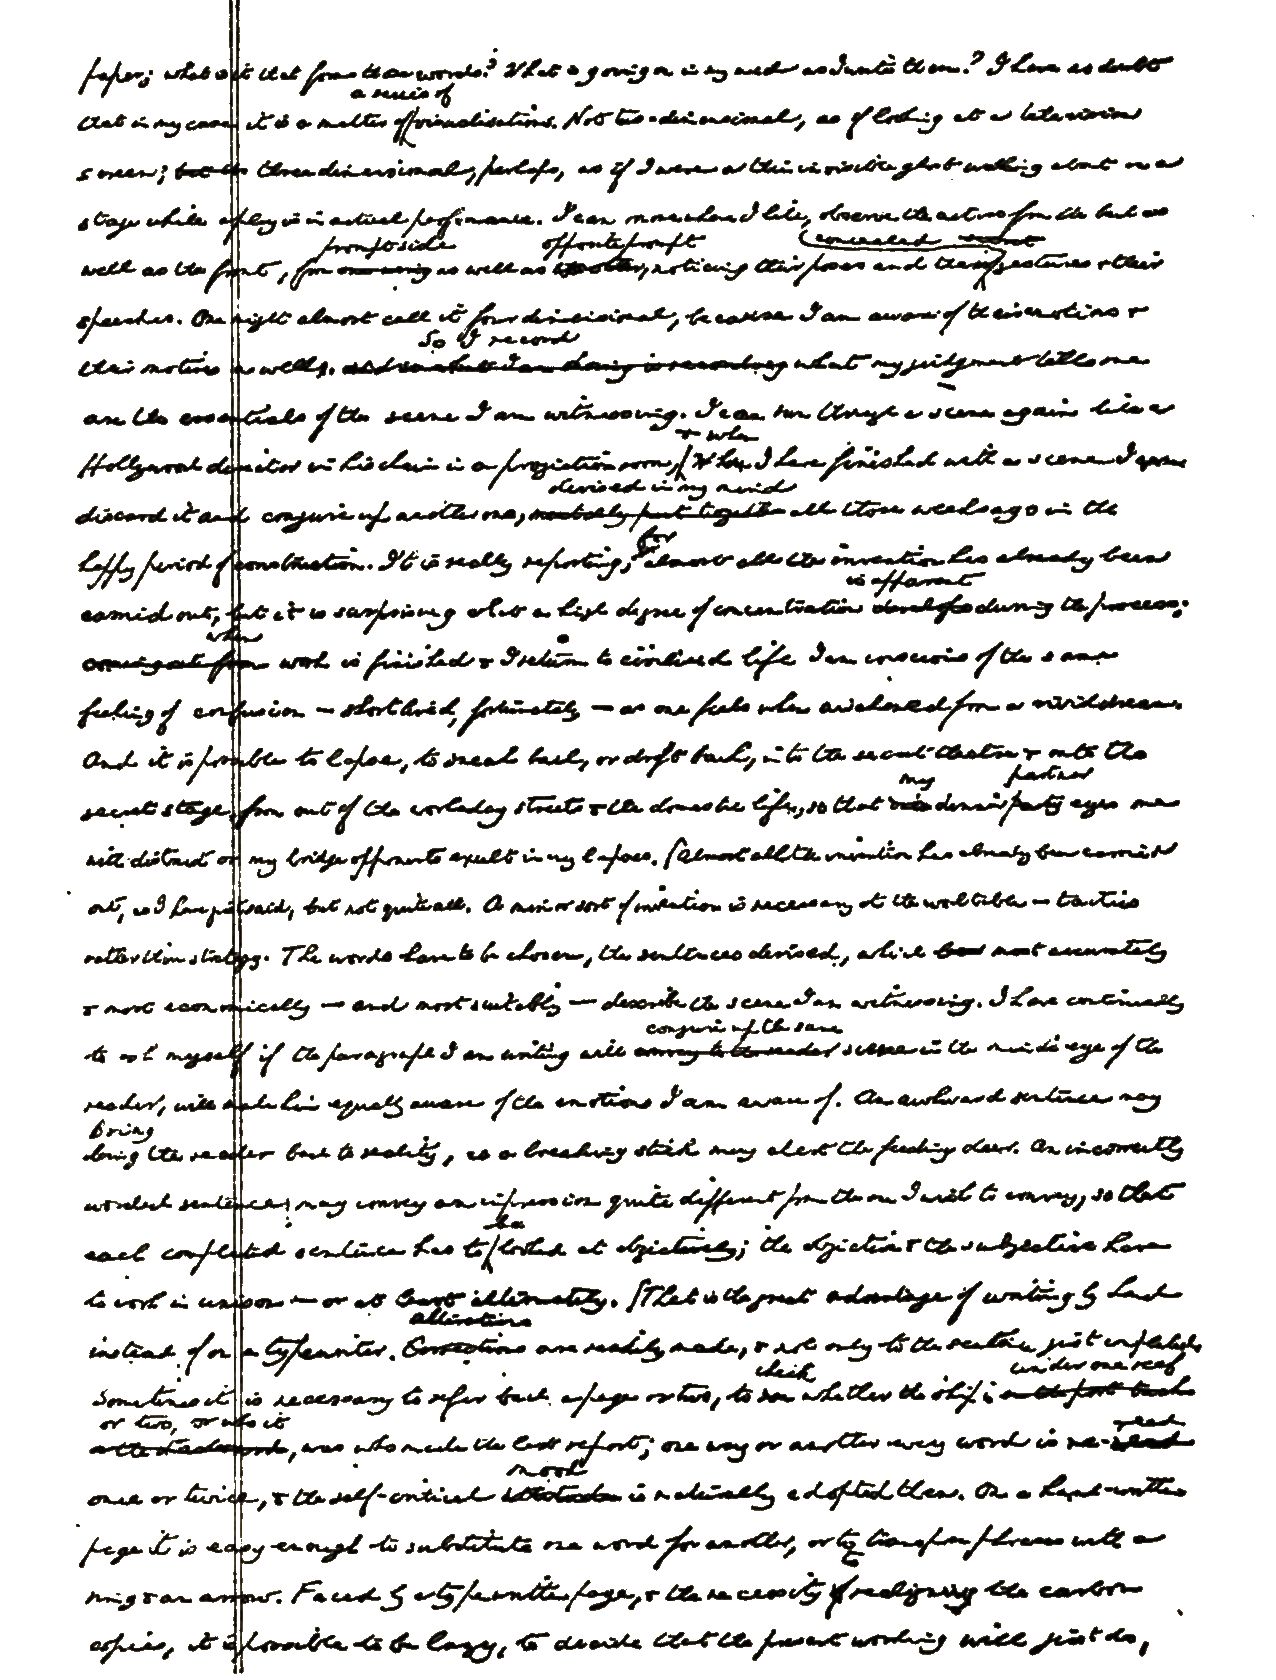 paper; what is it that forms those words? What is going on in my mind as I write them? I have no doubt
a series of
that in my case it is a matter of visualisations. Not two-dimensional, as if looking at a television
screen; but the three dimensional, perhaps, as if I were a thin invisible ghost walking about on a
stage while a play is in actual performance. I can move where I like, observe the actors from the back as
prompt side opposite prompt concealed
well as the front, from one wing as well as the other, noticing their poses and their gestures & their
speeches. One might almost call it four dimensional, because I am aware of their emotions &
So I record
their motives as well. and so what I am doing is recording what my judgment tells me
are the essentials of the scene I am witnessing. I can run through a scene again like a
& when
Hollywood director in his chair in a projection room, When I have finished with a scene I
devised in my mind
discard it and conjure up another one, put together all those weeks ago in the
for
happy period of construction. It is really reporting, almost all the invention has already been
is apparent
carried out, but it is surprising what a high degree of concentration develops during the process;
when
coming out from work is finished & I return to civilised life I am conscious of the same
feeling of confusion — short lived, fortunately — as one feels when awakened from a vivid dream.
And it is possible to lapse, to sneak back, or drift back, into the secret theatre & onto the
my partner
secret stage, from out of the workaday streets & the domestic life, so that dinner party eyes me
with distrust or my bridge opponents exult in my lapses. Almost all the invention has already been carried
out, as I have just said, but not quite all. A minor sort of invention is necessary at the work table — tactics
rather than strategy. The words have to be chosen, the sentences devised, which best most accurately
& most economically — and most suitably — describe the scene I am witnessing. I have continually
conjure up the same
to ask myself if the paragraph I am writing will convey to the reader scene in the mind's eye of the
reader, will make him equally aware of the emotions I am aware of. An awkward sentence may
bring
bring the reader back to reality, as a breaking stick may alert the feeding deer. An incorrectly
worded sentence may convey an impression quite different from the one I wish to convey, so that
be
each completed sentence has to looked at objectively; the objective & the subjective have
to work in unison — or at least alternately. That is the great advantage of writing by hand
alterations
instead of on a typewriter. Corrections are readily made, & not only to the sentence just completed.
check under one reef
Sometimes it is necessary to refer back a page or two, to see whether the ship is on the port tack
or two, or who it
, was who made the last report; one way or another every word is re-read
read
mood
once or twice, & the self-critical attitude is naturally adopted then. On a hand-written
page it is easy enough to substitute one word for another, or to transpose phrases with a
ring & an arrow. Faced by a typewritten page, & the necessity of realigning the carbon
copies, it is possible to be lazy, to decide that the present wording will just do,